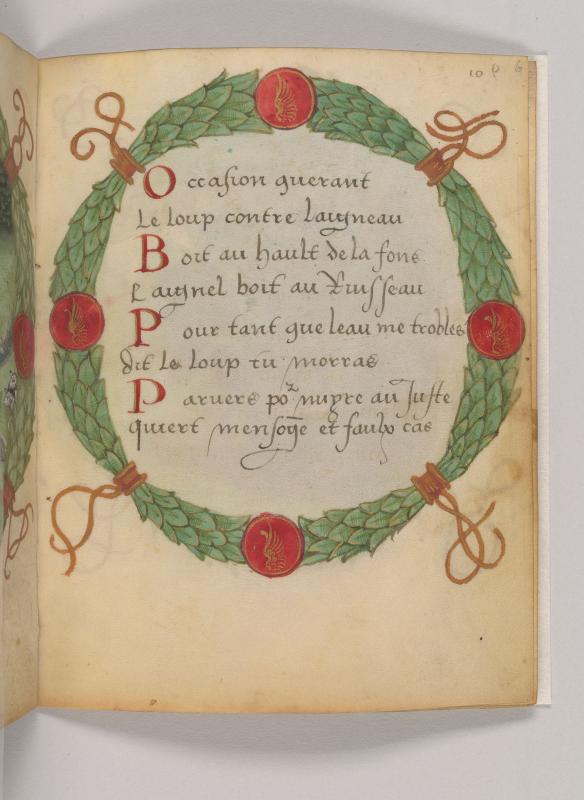 10
Occasion querant
Le loup contre laigneau
Boit au hault de la fons
Laignel boit au ruisseau
Pour tant que leau me trobles
dit le loup tu morras
Parvers por nuyre au Juste
quiert mensoge et faulx cas